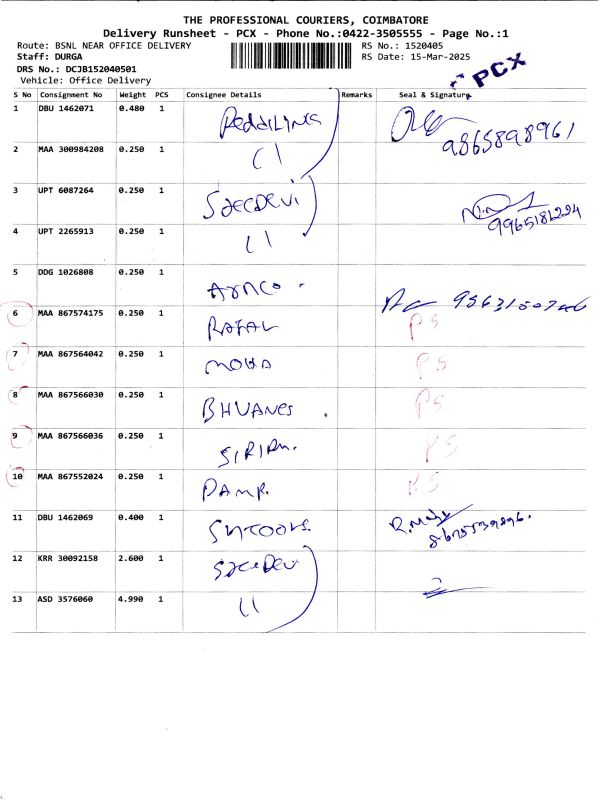 THE PROFESSIONAL COURIERS, COIMBATORE
Delivery Runsheet - PCX - Phone No.:0422-3505555 - Page No.:1
Route: BSNL NEAR OFFICE DELIVERY RS No.: 1520405
Staff: DURGA RS Date: 15-Mar-2025
DRS No.: DCJB152040501
Vehicle: Office Delivery
PCX
S No Consignment No Weight PCS Consignee Details Remarks Seal & Signature
1 DBU 1462071 0.480 1
9865898961
2 MAA 300984208 0.250 1 11
3 UPT 6087264 0.250 1 SreeDevi
9965181224
4 UPT 2265913 0.250 1 11
5 DDG 1026808 0.250 1
6 MAA 867574175 0.250 1 PS
7 MAA 867564042 0.250 1 PS
8 MAA 867566030 0.250 1 BHUANES PS
9 MAA 867566036 0.250 1 PS
10 MAA 867552024 0.250 1 PS
11 DBU 1462069 0.400 1
12 KRR 30092158 2.600 1 SreeDevi
13 ASD 3576060 4.990 1 11